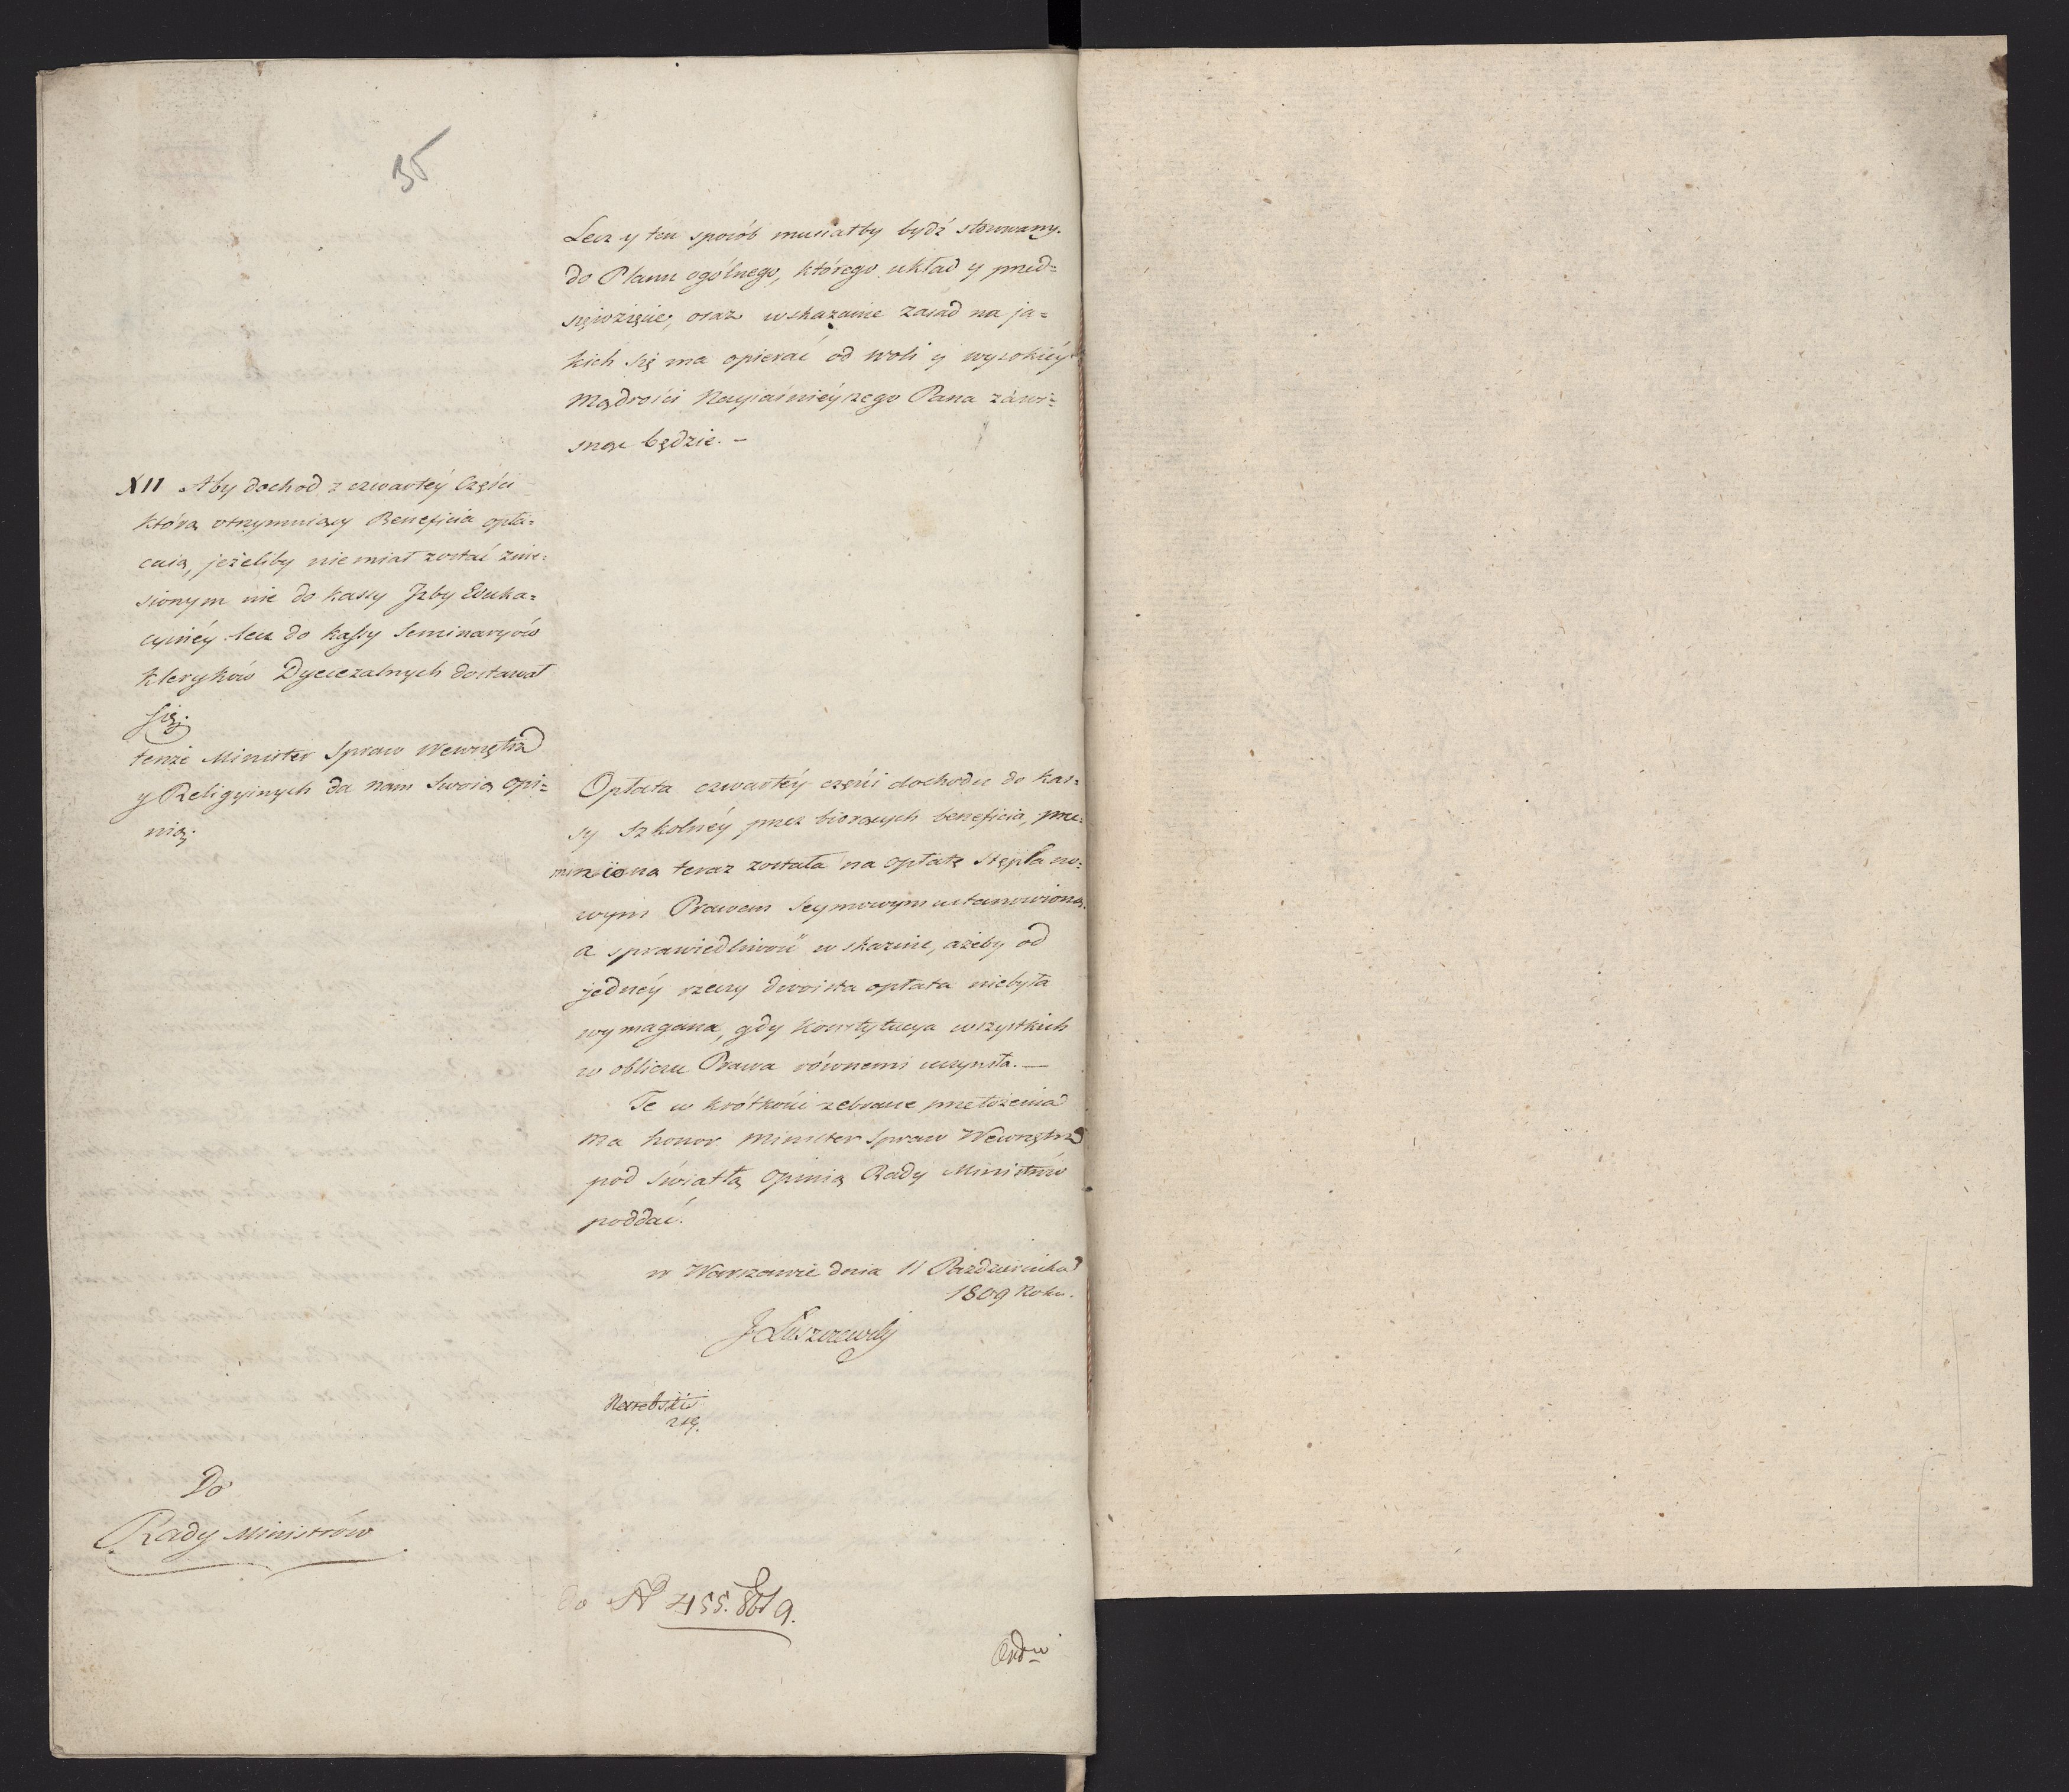 35
Lecz y ten sposób musiałby bydź stosowany
do Planu ogólnego, którego układ y przed=
sięwzięcie, oraz wskazanie zasad na ja=
kich się ma opierać od woli y wysokiéy
Mądrości Nayiaśnieyszego Pana zawi=
sneć będzie. –
XII Aby dochod z czwartéy Części
którą otrzymuiący Beneficia opła=
caią, jeżeliby nie miał zostać znie=
sionym nie do kassy Jzby Eduka=
cyinéy lecz do kassy Seminaryów
Kleryków Dyecezalnych dostawał
się.
tenże Minister Spraw Wewnętrz
y Religyinych da nam Swoią opi=
nią.
Opłata czwartéy części dochodu do kas=
sy Szkolnéy przez biorących beneficia, prze=
mieniona teraz została na opłatę Stępla no=
wym Prawem Seymowym ustanowioną.
a sprawiedliwość wskazuie, ażeby od
jednéy rzeczy dwoista opłata niebyła
wymagana, gdy Konstytucya wszystkich
w obliczu Prawa równemi uczyniła. —
Te w krótkości zebrane przełożenia
ma honor Minister Spraw Wewnętrz
pod światłą Opinią Rady Ministrów
poddać.
w Warszawie dnia 11 Pazdziernika
1809 Roku.
J Łuszczewski
Do
Rady Ministrów
do N 455. 9.